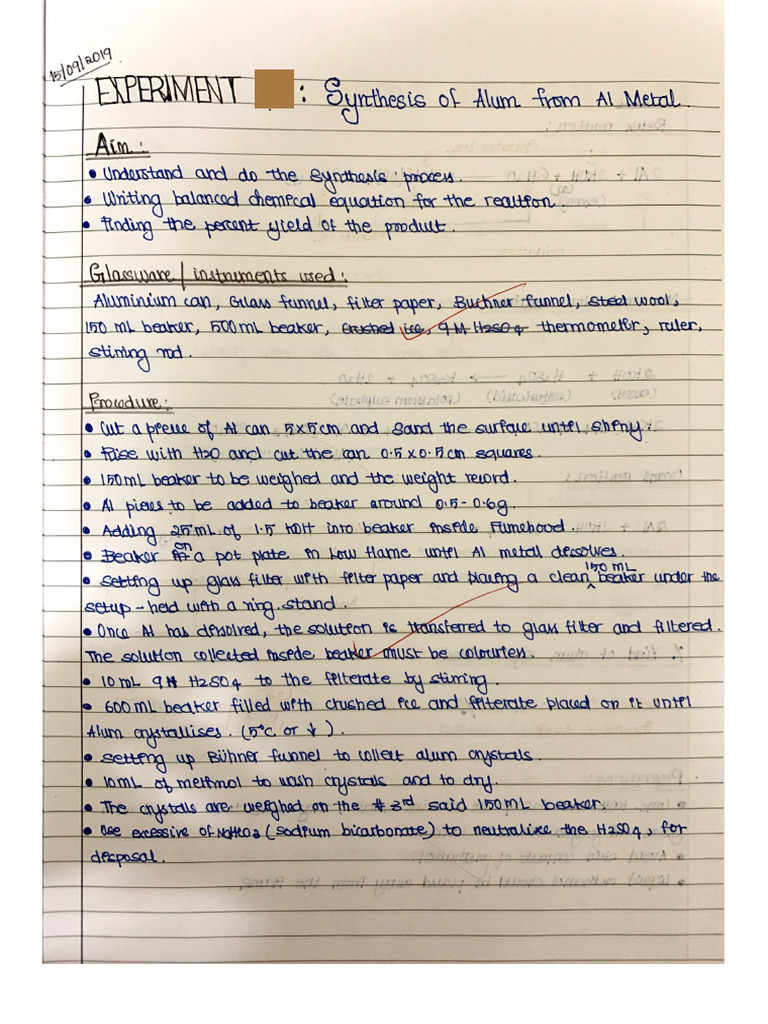 15/09/2019
EXPERIMENT : Synthesis of Alum from Al Metal.
Aim :
• Understand and do the synthesis process.
• Writing balanced chemical equation for the reaction.
• Finding the percent yield of the product.
Glassware / instruments used :
Aluminium can, Glass funnel, filter paper, Buchner funnel, steel wool,
150 mL beaker, 500mL beaker, crushed ice, 9M H2SO4 thermometer, ruler,
stirring rod.
Procedure :
• Cut a piece of Al can 5x5cm and sand the surface until shiny.
• Rise with H2O and cut the can 0.5 x 0.5 cm squares.
• 150ml beaker to be weighed and the weight record.
• Al pieces to be added to beaker around 0.5 - 0.6g.
• Adding 25mL of 1.5 KOH into beaker inside fumehood.
• Beaker on a pot plate in low flame until Al metal dissolves.
• Setting up glass filter with filter paper and placing a clean 150 mL beaker under the
setup - held with a ring stand.
• Once Al has dissolved, the solution is transferred to glass filter and filtered.
The solution collected inside beaker must be colourless.
• 10 mL 9M H2SO4 to the filterate by stirring.
• 600 mL beaker filled with crushed ice and filterate placed on it until
Alum crystallises. (5°C or ↓).
• Setting up Bühner funnel to collect alum crystals.
• 10mL of methnol to wash crystals and to dry.
• The crystals are weighed on the # 3rd said 150mL beaker.
• Use excessive of NaHCO2 (sodium bicarbonate) to neutralize the H2SO4, for
disposal.